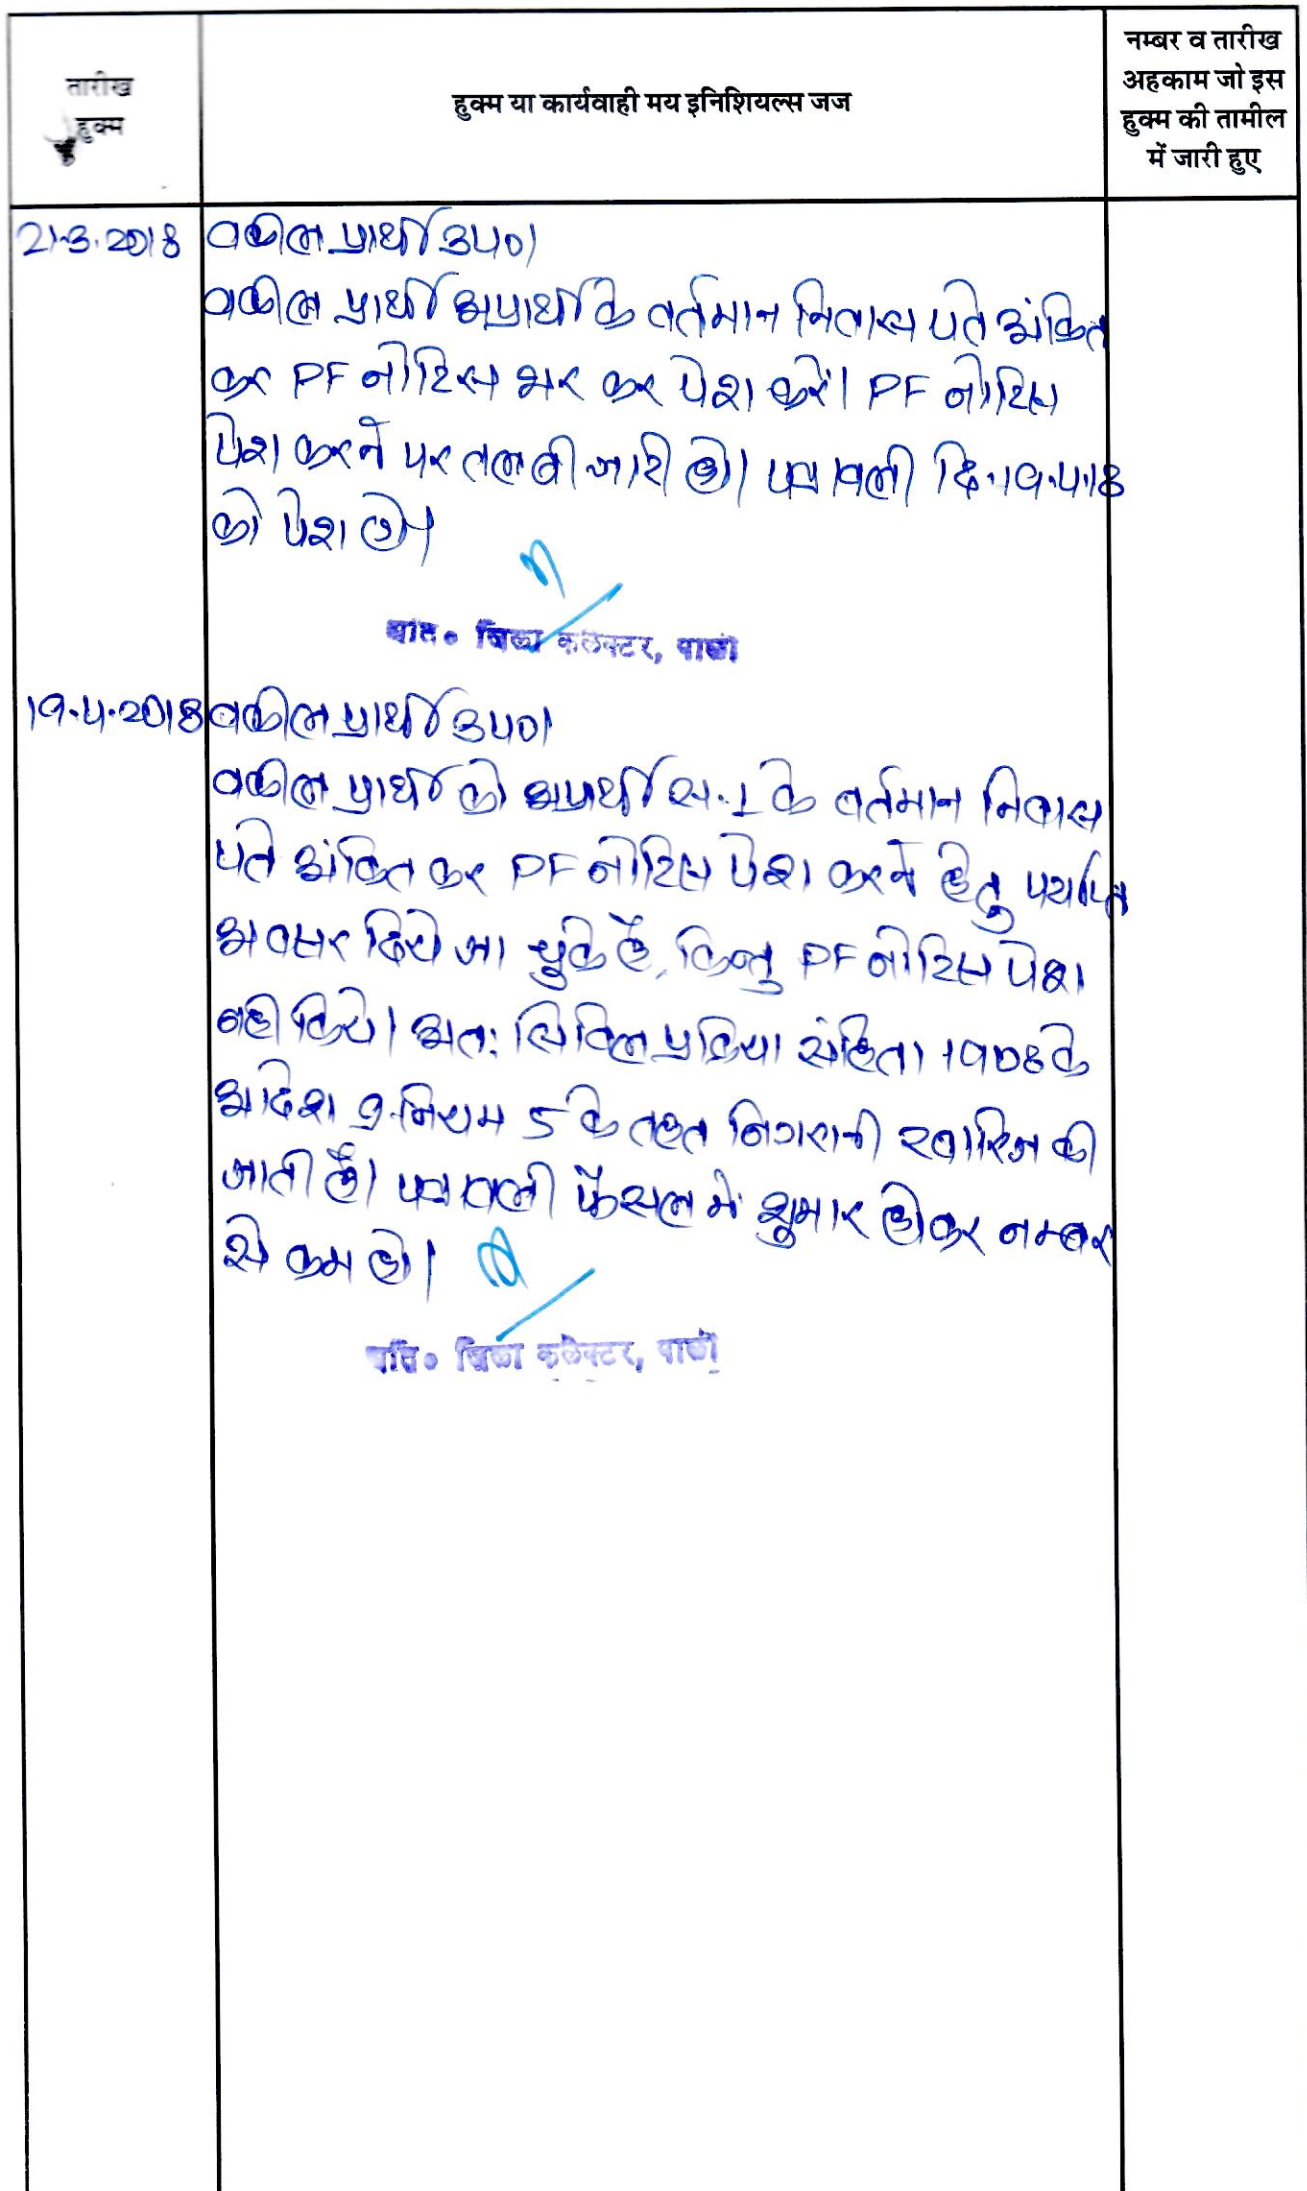 तारीख
हुक्म
हुक्म या कार्यवाही मय इनिशियल्स जज
नम्बर व तारीख
अहकाम जो इस
हुक्म की तामील
में जारी हुए
21.3.2018 वकील प्रार्थी उप०।
वकील प्रार्थी अप्रार्थी के वर्तमान निवास पते अंकित
कर PF नोटिस भर कर पेश करें। PF नोटिस
पेश करने पर तलबी जारी हो। पत्रावली दि.19.4.18
को पेश हो।
अति० जिला कलेक्टर, पाली
19.4.2018 वकील प्रार्थी उप०।
वकील प्रार्थी को अप्रार्थी सं.1 के वर्तमान निवास
पते अंकित कर PF नोटिस पेश करने हेतु पर्याप्त
अवसर दिये जा चुके है, किन्तु PF नोटिस पेश
नही किये। अतः सिविल प्रक्रिया संहिता 1908 के
आदेश 9 नियम 5 के तहत निगरानी खारिज की
जाती है। पत्रावली फैसल में शुमार होकर नम्बर
से कम हो।
अति० जिला कलेक्टर, पाली